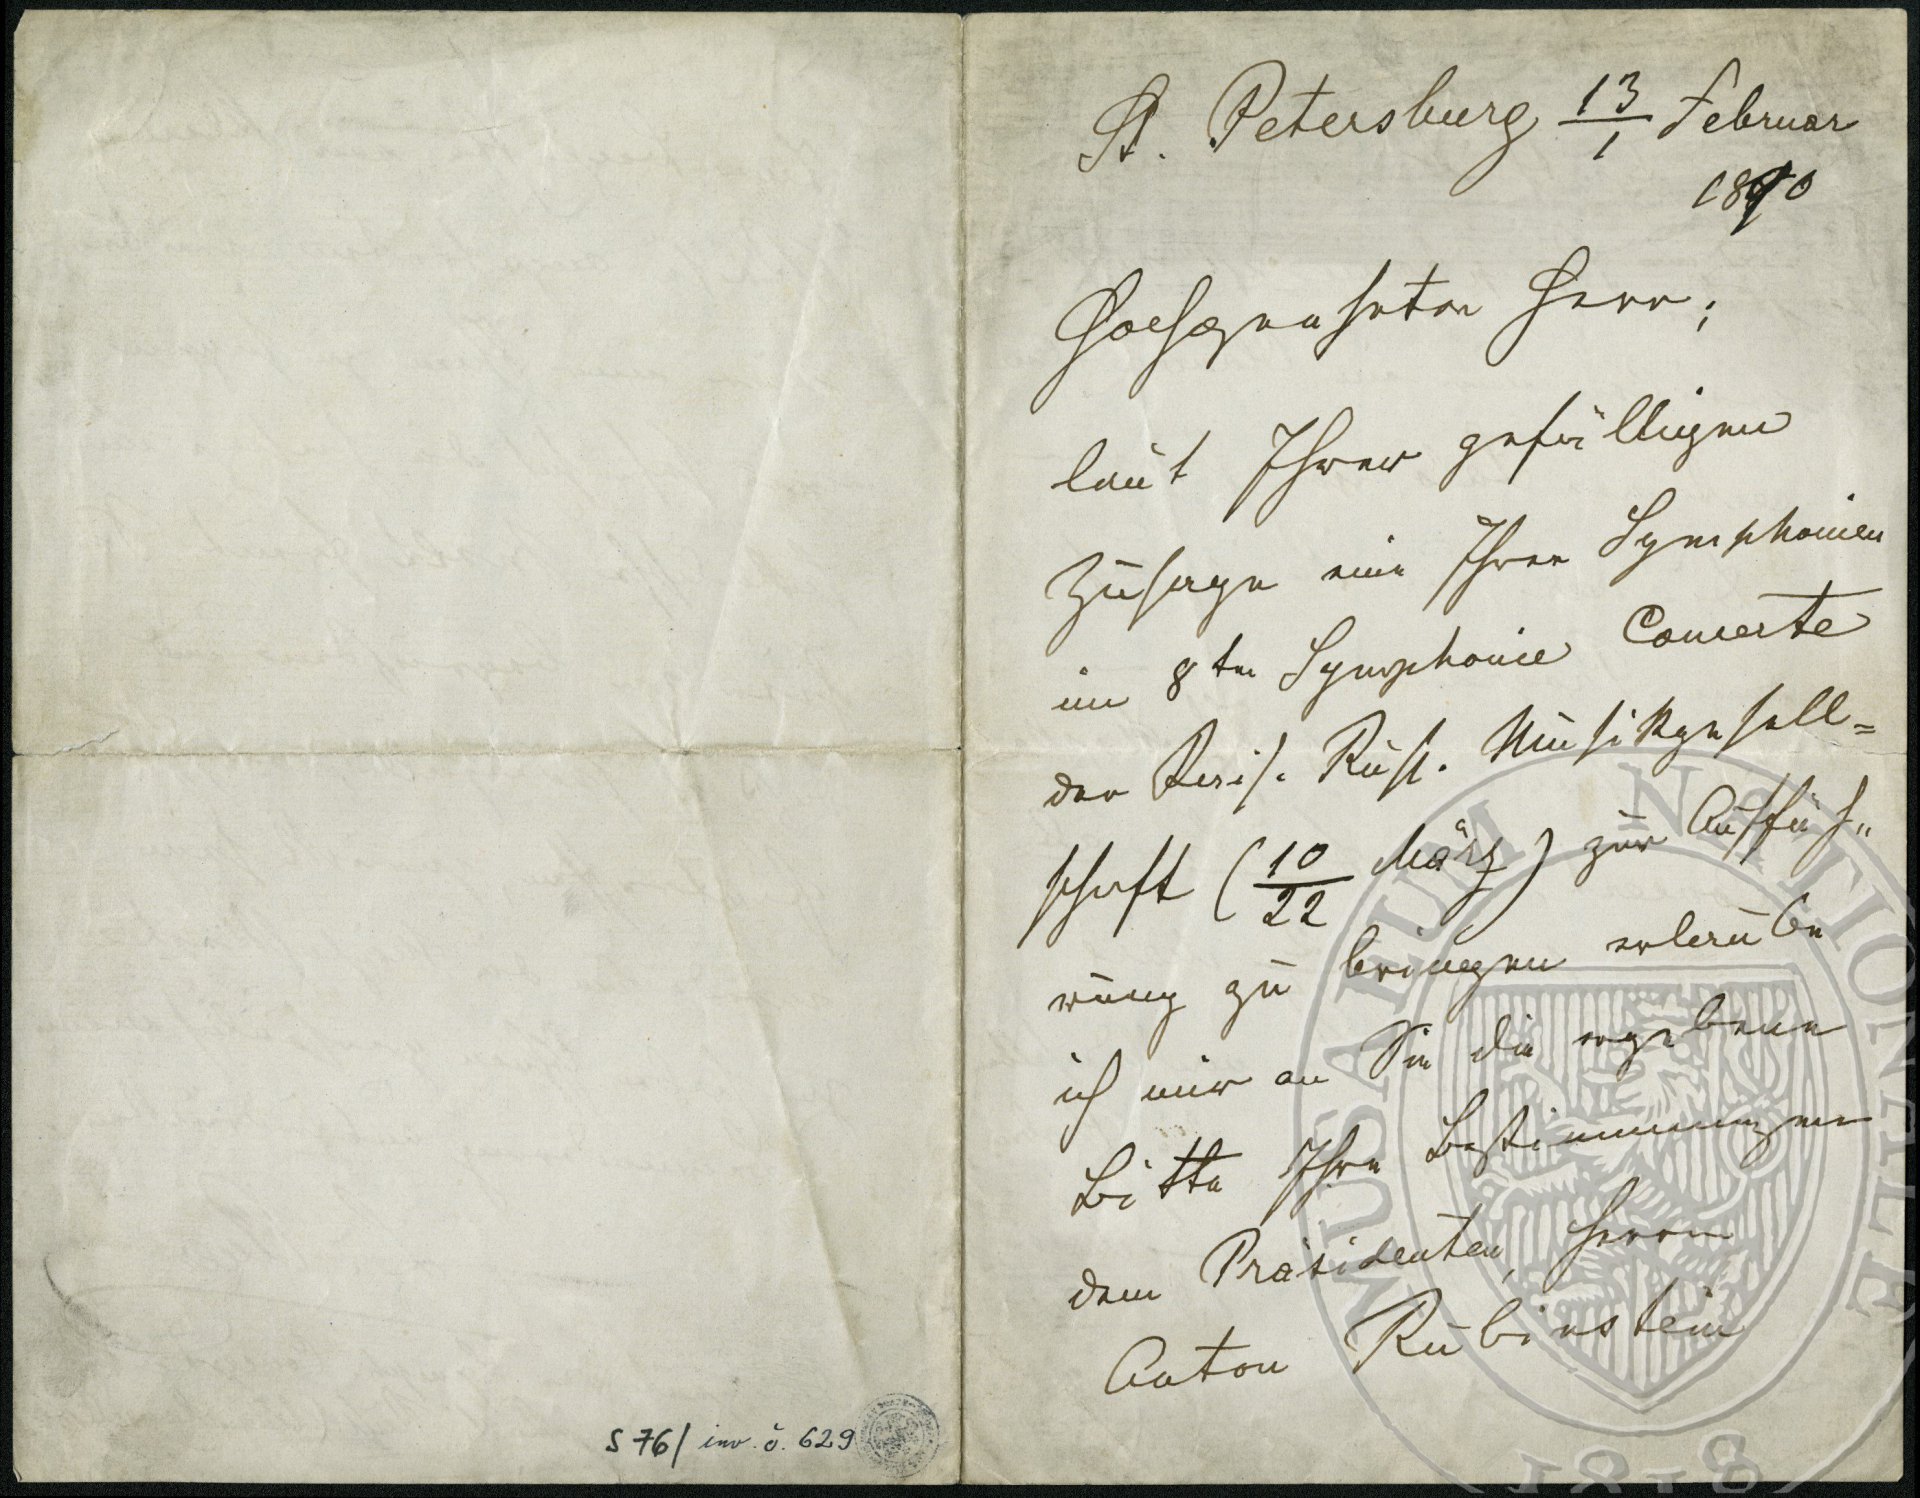 S 76/ inv. č. 629
St. Petersburg 13/1 Februar
1890
Hochgeehrter Herr;
laut Ihrer gefälligen
Zusage eine Ihrer Symphonien
im 8ten Symphonie Concerte
der Kais. Russ. Musikgesell=
schaft (10/22 März) zur Auffüh„
rung zu bringen erlaube
ich mir an Sie die ergebene
Bitte Ihre Bestimmungen
dem Präsidenten, Herrn
Anton Rubinstein
MUSAEUM NATIONALE
1818